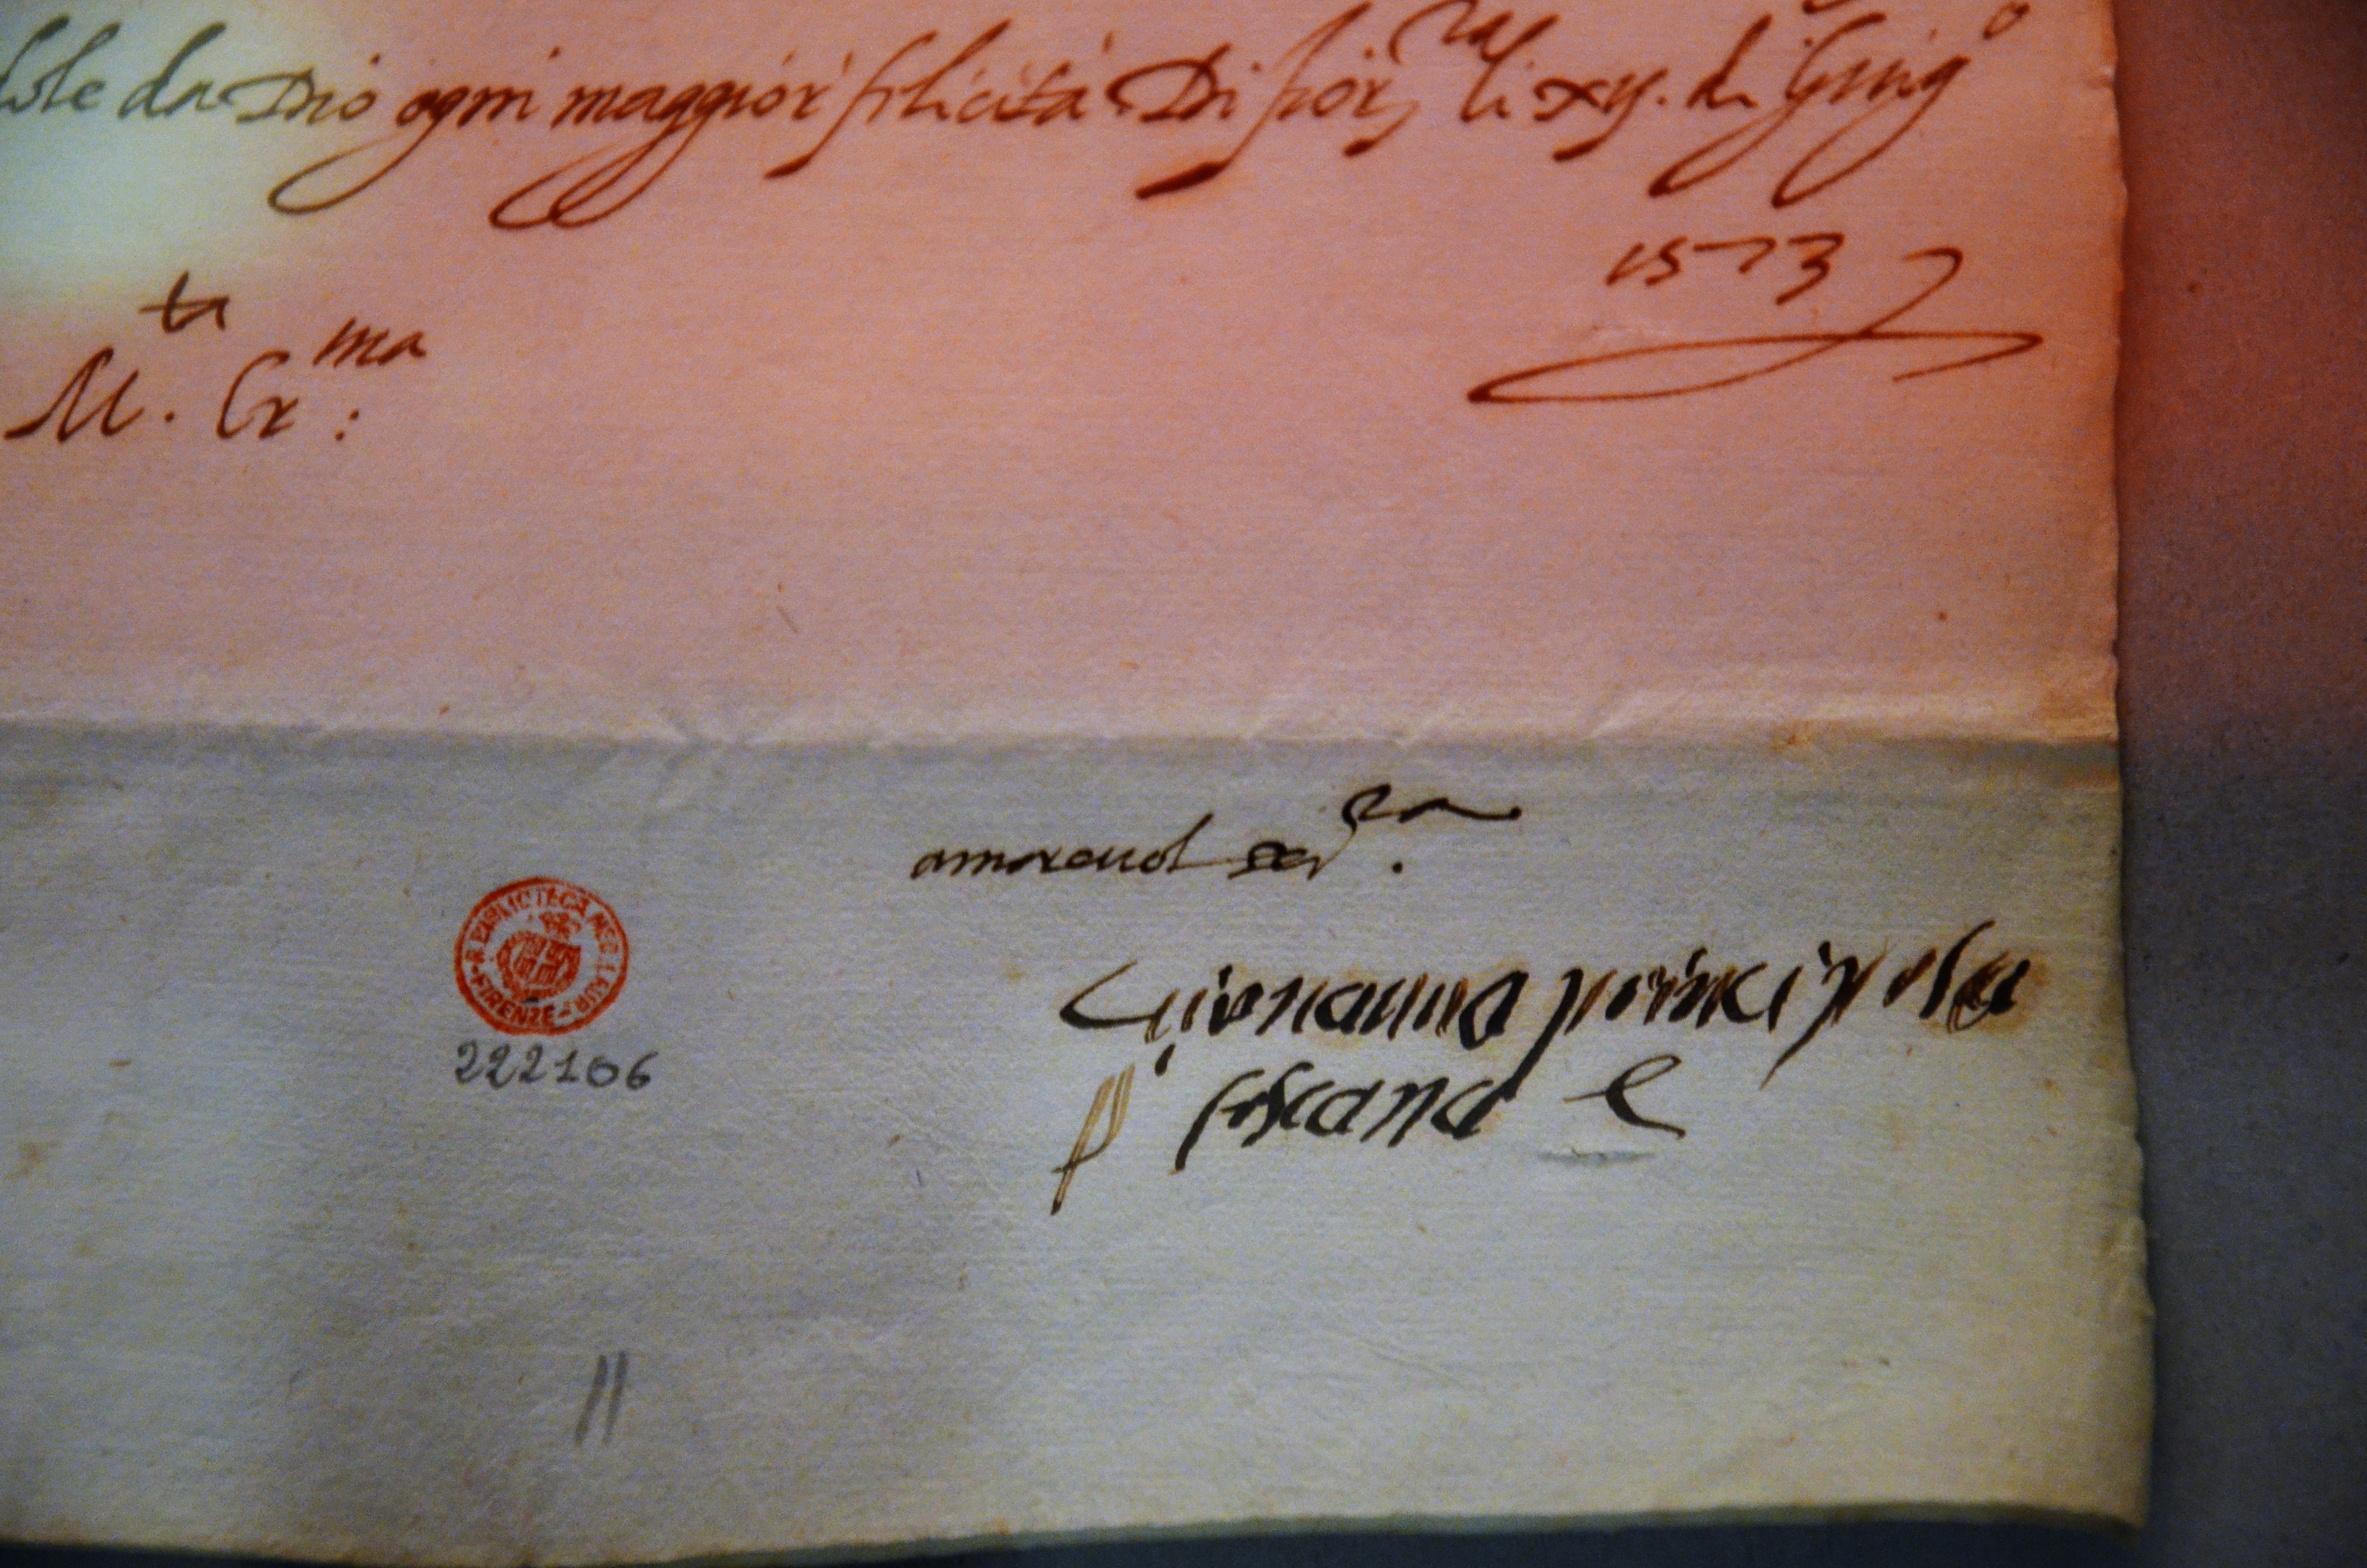 da Dio ogni maggior felicità Di fior.za li xy. di Giug.o
1573
M.ta Cr.ma:
amorevol ser.ra
Giovanna principesa
di toscana
R. BIBLIOTECA MED. LAUR. - FIRENZE -
222106
11